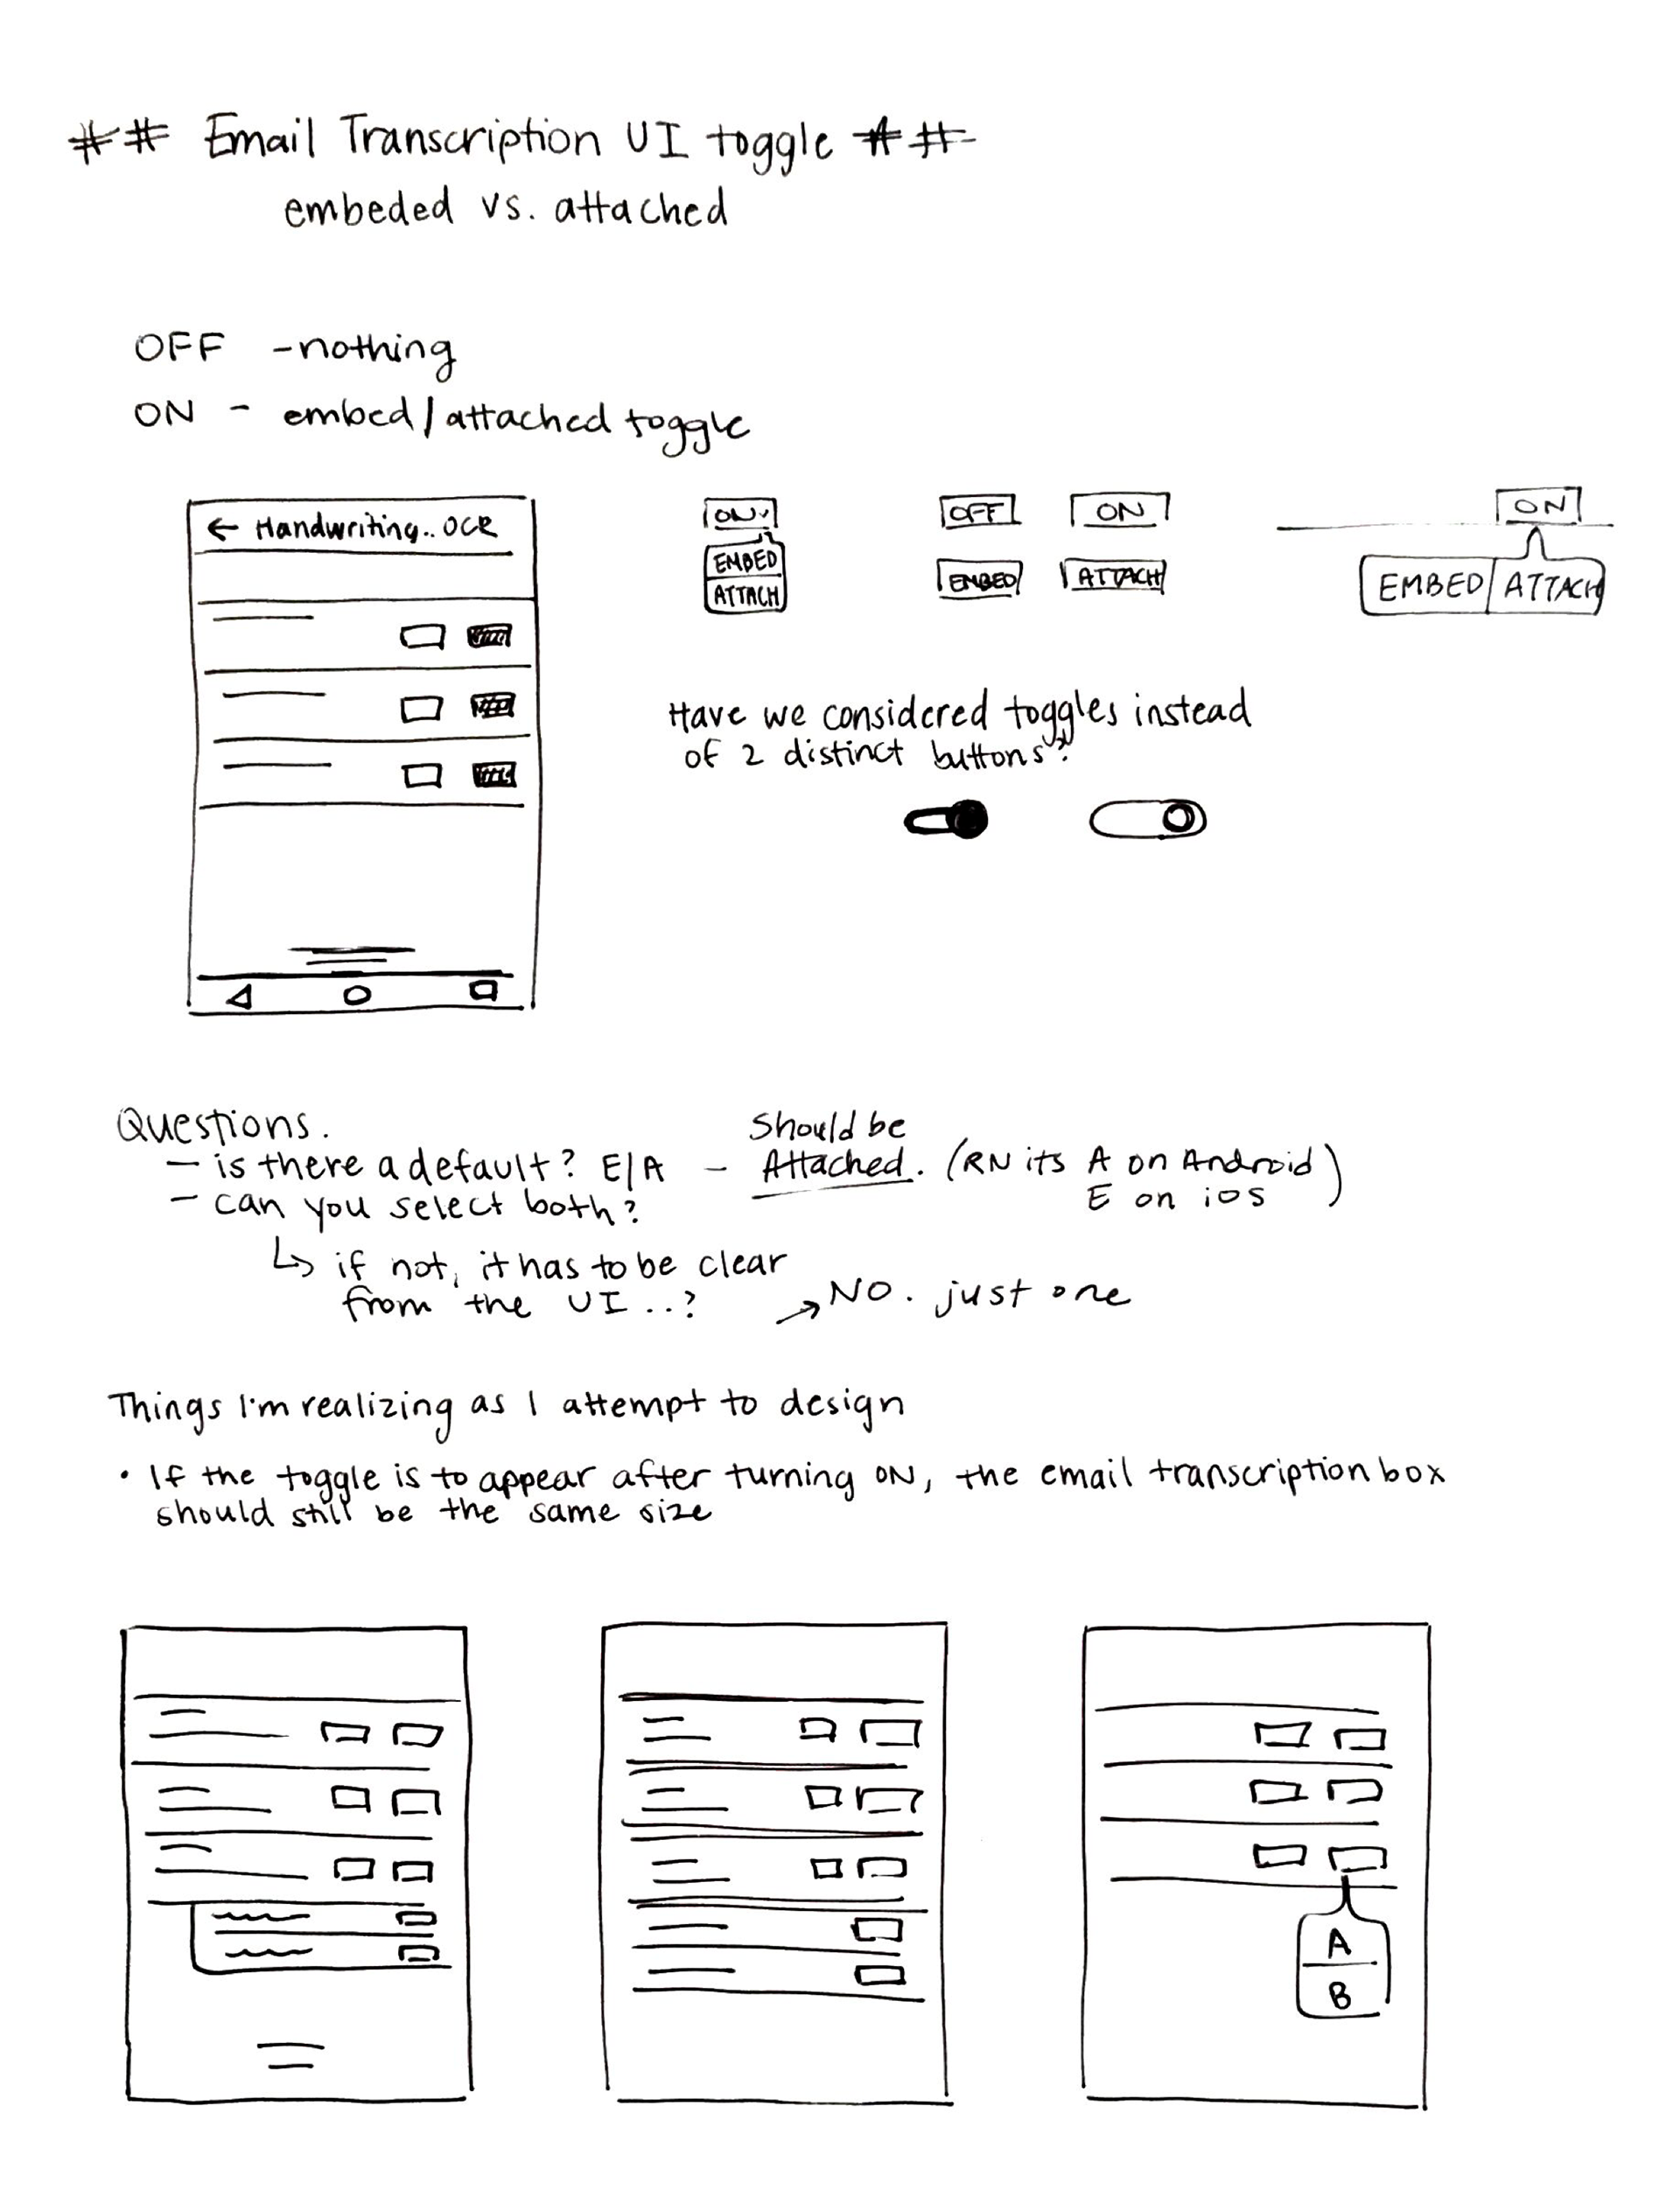 ## Email Transcription UI toggle ##
embeded vs. attached
OFF - nothing
ON - embed/attached toggle
← Handwriting.. OCR
ON
EMBED
ATTACH
OFF ON
EMBED ATTACH
ON
EMBED ATTACH
Have we considered toggles instead
of 2 distinct buttons?
Questions.
- is there a default? E/A - Should be
Attached. (RN its A on Android
E on iOS)
- can you select both?
↳ if not, it has to be clear
from the UI..?
→ NO. just one
Things I'm realizing as I attempt to design
• If the toggle is to appear after turning ON, the email transcription box
should still be the same size
A
B